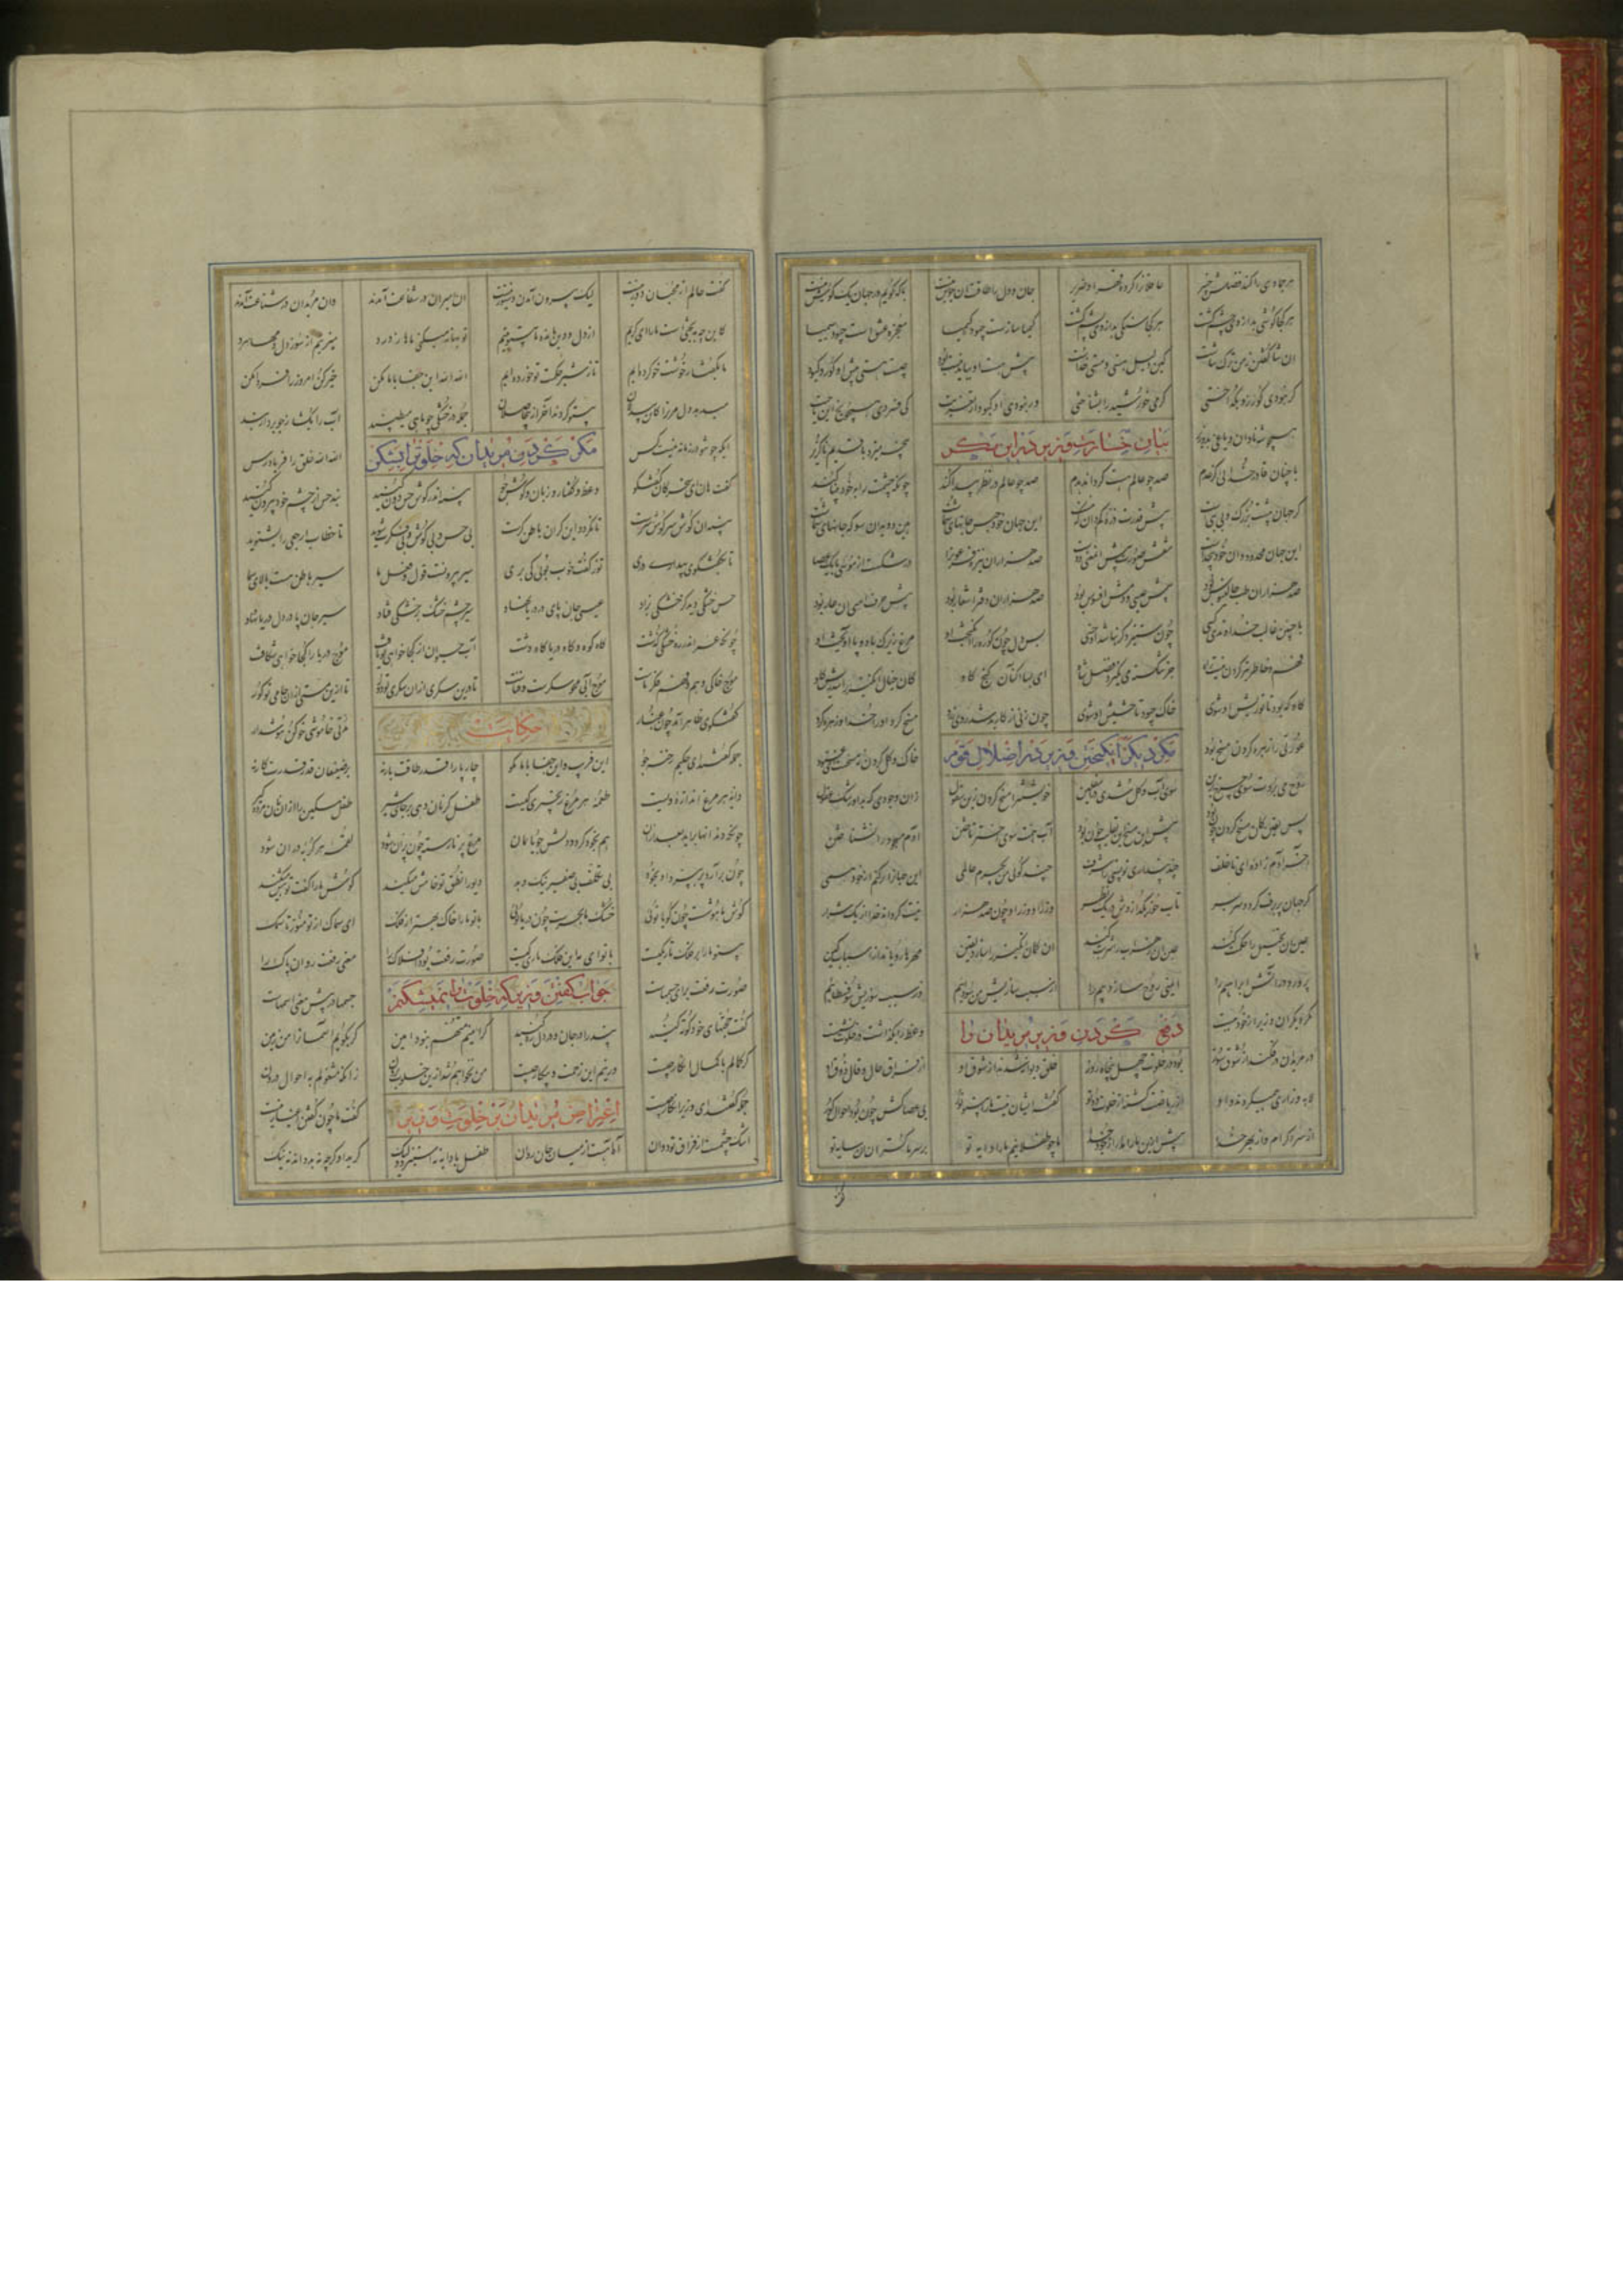 هر جمادی را کند فضلش خبیر عاقلان را کرده قهر او ضریر جان و دل را طاقت آن جوش نیست با که گویم در جهان یک گوش نیست
هر کجا گوشی بد از وی چشم گشت هر کجا سنگی بد از وی یشم گشت کیمیا سازست چبود کیمیا معجزه بخش است چبود سیمیا
این ثنا گفتن ز من ترک ثناست کین دلیل هستی و هستی خطاست پیش هست او بباید نیست بود چیست هستی پیش او کور و کبود
گر نبودی کور زو بگداختی گرمی خورشید را بشناختی ور نبودی او کبود از تعزیت کی فسردی همچو یخ این ناحیت
همچو شه نادان و غافل بد وزیر پنجه میزد با قدیم ناگزیر
بیان خسارت وزیر درین مکر
با چنان قادر خدایی کز عدم صد چو عالم هست گرداند بدم صد چو عالم در نظر پیدا کند چونکه چشمت را به خود بینا کند
گر جهان پیشت بزرگ و بی بنیست پیش قدرت ذره میدان که نیست این جهان خود حبس جانهای شماست هین دوید آن سو که جانهای شماست
این جهان محدود و آن خود بیحدست نقش و صورت پیش آن معنی سدست صد هزاران نیزه فرعون را در شکست از موسی با یک عصا
صد هزاران طب جالینوس بود پیش عیسی و دمش افسوس بود صد هزاران دفتر اشعار بود پیش حرف امی آن عار بود
با چنین غالب خداوندی کسی چون نمیرد گر نباشد او خسی بس دل چون کوه را انگیخت او مرغ زیرک با دو پا آویخت او
فهم و خاطر تیز کردن نیست راه جز شکسته می نگیرد فضل شاه ای بسا گنج آکنان کنج کاو کان خیال اندیش را شد ریش گاو
گاو که بود تا تو ریش او شوی خاک چبود تا حشیش او شوی چون زنی از کار بد شد روی زرد مسخ کرد او را خدا و زهره کرد
عورتی را زهره کردن مسخ بود خاک و گل گشتن نه مسخ است ای عنود
مکر دیگر انگیختن وزیر در اضلال قوم
روح می بردت سوی چرخ برین سوی آب و گل شدی در اسفلین خویشتن را مسخ کردی زین سفول زان وجودی که بد آن رشک عقول
پس ببین کین مسخ کردن چون بود پیش آن مسخ این بغایت دون بود اسب همت سوی اختر تاختی آدم مسجود را نشناختی
آخر آدم زاده ای ناخلف چند پنداری تو پستی را شرف چند گویی من بگیرم عالمی این جهان را پر کنم از خود همی
گر جهان پر برف گردد سر بسر تاب خور بگدازدش در یک نظر وزر او و وزر او چون صد هزار نیست گرداند خدا از یک شرار
عین آن تخییل را حکمت کند عین آن زهراب را شربت کند آن گمان انگیز را سازد یقین مهرها رویاند از اسباب کین
پرورد در آتش ابراهیم را ایمنی روح سازد بیم را از سبب سازیش من سوداییم در سبب سوزیش سوفسطاییم
مکر دیگر آن وزیر از خود ببست وعظ را بگذاشت در خلوت نشست
دفع کردن وزیر مریدان را
در مریدان در فکند از شوق سوز بود در خلوت چهل پنجاه روز خلق دیوانه شدند از شوق او از فراق حال و قال و ذوق او
لابه و زاری همی کردند و او از ریاضت گشته در خلوت دوتو گفته ایشان نیست ما را بی تو نور بی عصاکش چون بود احوال کور
از سر اکرام و از بهر خدا بیش ازین ما را مدار از خود جدا ما چو طفلانیم ما را دایه تو بر سر ما گستران آن سایه تو
گفت جانم از محبان دور نیست لیک بیرون آمدن دستور نیست آن امیران در شفاعت آمدند وان مریدان در شناعت آمدند
کاین چه بدبختی است ما را ای کریم از دل و دین مانده ما بی تو یتیم تو بهانه میکنی ما ز درد میزنیم از سوز دل دمهای سرد
ما بگفتار خوشت خو کرده ایم ما ز شیر حکمت تو خورده ایم الله الله این جفا با ما مکن خیر کن امروز را فردا مکن
میدهد دل مر ترا کان بیدلان بی تو گردند آخر از بیحاصلان جمله در خشکی چو ماهی میطپند آب را بگشا ز جو بردار بند
ایکه چون تو در زمانه نیست کس الله الله خلق را فریاد رس
مکر کردن مریدان که خلوت را بشکن
گفت هان ای سخرگان گفت و گو وعظ و گفتار زبان و گوش جو پنبه اندر گوش حس دون کنید بند حس از چشم خود بیرون کنید
پنبه آن گوش سر گوش سرست تا نگردد این کر آن باطن کرست بی حس و بی گوش و بی فکرت شوید تا خطاب ارجعی را بشنوید
تا بگفت و گوی بیداری دری تو ز گفت خواب بویی کی بری سیر بیرونیست قول و فعل ما سیر باطن هست بالای سما
حس خشکی دید کز خشکی بزاد عیسی جان پای بر دریا نهاد سیر جسم خشک بر خشکی فتاد سیر جان پا در دل دریا نهاد
چونکه عمر اندر ره خشکی گذشت گاه کوه و گاه دریا گاه دشت آب حیوان از کجا خواهی تو یافت موج دریا را کجا خواهی شکافت
موج خاکی وهم و فهم و فکر ماست موج آبی محو سکرست و فناست تا درین سکری از آن سکری تو دور تا ازین مستی از آن جامی تو کور
گفتگوی ظاهر آمد چون غبار مدتی خاموش خو کن هوش دار
حکایت
جمله گفتند ای حکیم رخنه جو این فریب و این جفا با ما مگو چارپا را قدر طاقت بار نه بر ضعیفان قدر قدرت کار نه
دانه هر مرغ اندازه ویست طعمه هر مرغ انجیری کیست طفل را گر نان دهی بر جای شیر طفل مسکین را از آن نان مرده گیر
چونکه دندانها برآرد بعد از آن هم بخود گردد دلش جویای نان مرغ پر نارسته چون پران شود لقمه هر گربه دران شود
چون برآرد پر بپرد او بخود بی تکلف بی صفیر نیک و بد دیو را نطق تو خامش میکند گوش ما را گفت تو هش میکند
گوش ما هوشست چون گویا توئی خشک ما بحرست چون دریا توئی با تو ما را خاک بهتر از فلک ای سماک از تو منور تا سمک
بی تو ما را بر فلک تاریکیست با تو ای ماه این فلک تاری کیست صورت رفعت بود افلاک را معنی رفعت روان پاک را
صورت رفعت برای جسمهاست جسمها در پیش معنی اسمهاست
جواب گفتن وزیر که خلوت را نمیشکنم
گفت حجتهای خود کوته کنید پند را در جان و در دل ره کنید گر امینم متهم نبود امین گر بگویم آسمان را من زمین
گر کمالم با کمال انکار چیست ور نیم این زحمت و پیکار چیست من نخواهم شد ازین خلوت برون زانکه مشغولم به احوال درون
جمله گفتند ای وزیر انکار نیست گفت ما چون گفتن اغیار نیست
اعتراض مریدان بر خلوت وزیر
اشک چشمست از فراق تو دوان آه آهست از میان جان روان طفل با دایه نه استیزد ولیک گرید او گرچه نه بد داند نه نیک